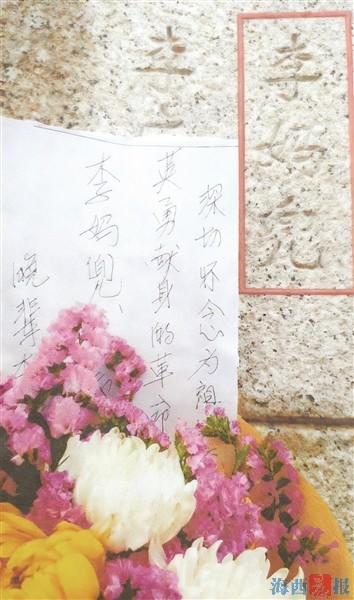 李妈兜
李
深切怀念为祖
英勇献身的革命
李妈兜、
晚辈
海西晨报